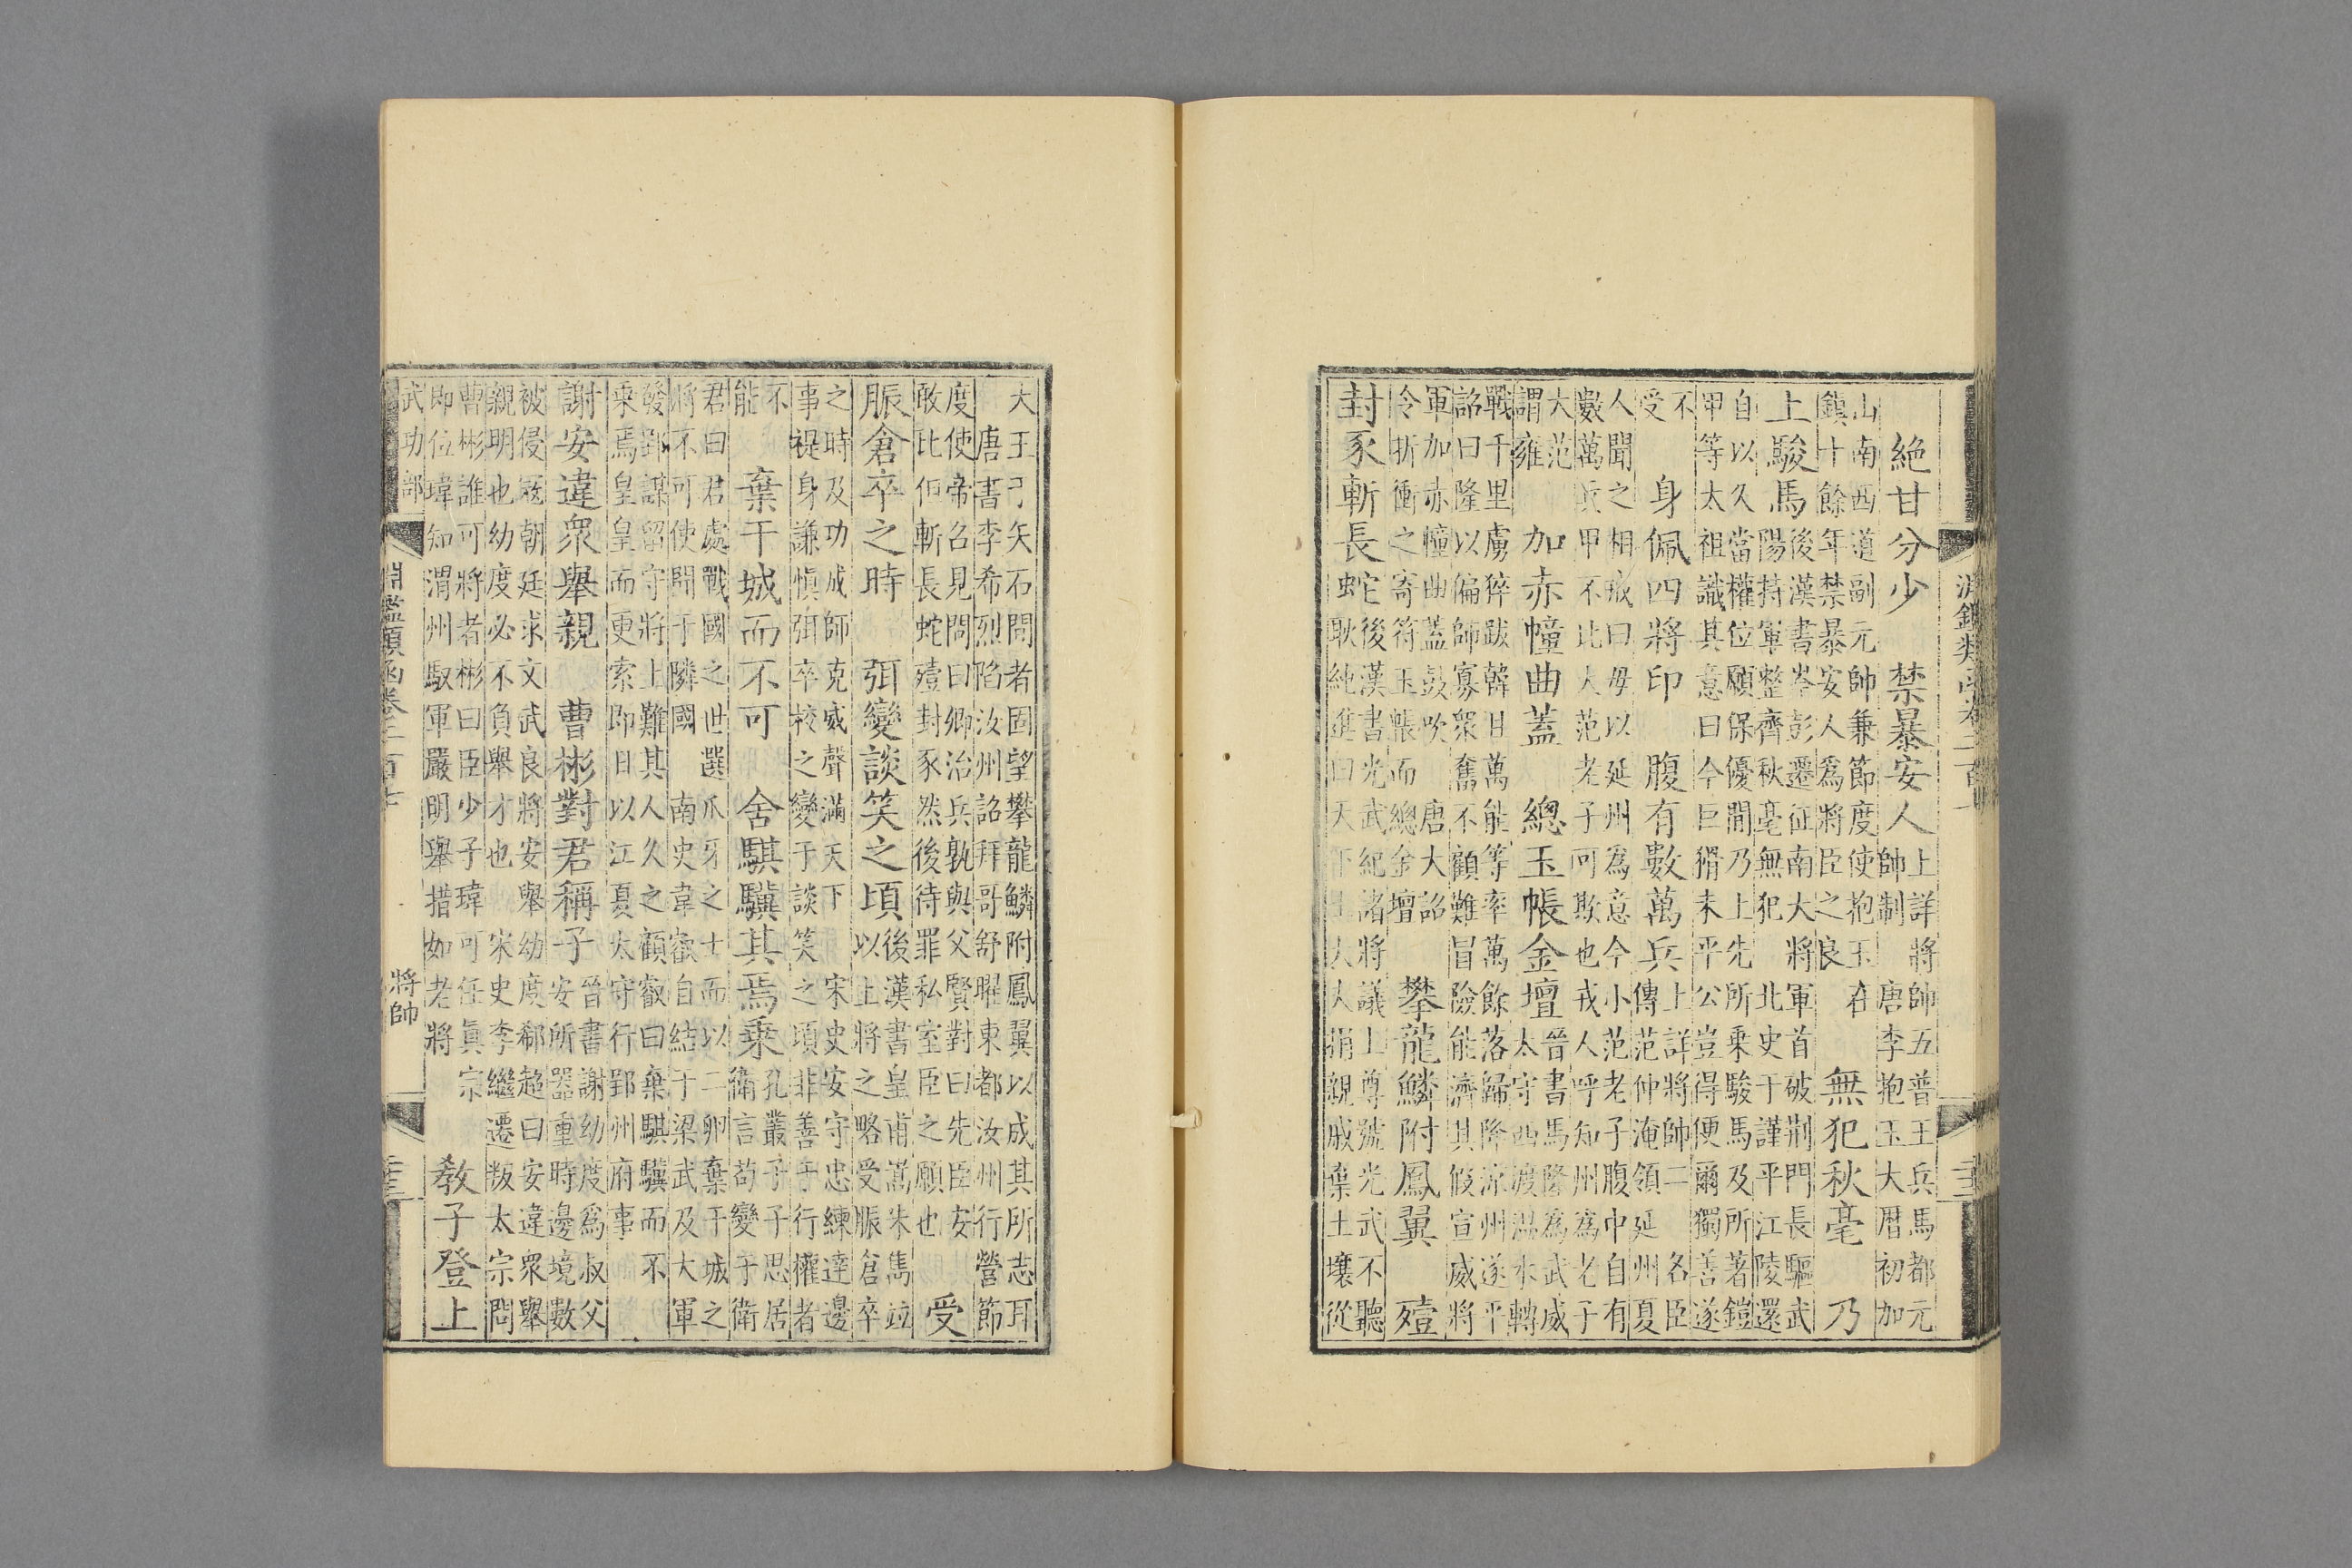 淵鑑類函
絕甘分少　禁暴安人
上詳將帥五普王兵馬都元
帥制　唐李抱玉大曆初加
山南西道副元帥兼節度使抱玉在
鎮十餘年禁暴安人爲將臣之良
無犯秋毫　乃
上駿馬
後漢書岑彭遷征南大將軍首破荊門長驅武
陽持軍整齊秋毫無犯　北史于謹平江陵還
自以久當權位願保優閒乃上先所乘駿馬及所著鎧
甲等太祖識其意曰今巨猾未平公豈得便爾獨善遂
不
受
身佩四將印　腹有數萬兵
上詳將帥二　各臣
傳范仲淹領延州夏
人聞之相戒曰毋以延州爲意今小范老子腹中自有
數萬兵甲不比大范老子可欺也戎人呼知州爲老子
大范
謂雍
加赤幢曲蓋　總玉帳金壇
晉書馬隆爲武威
太守西渡溫水轉
戰千里虜猝跋韓且萬能等率萬餘落歸降涼州遂平
詔曰隆以偏師寡衆奮不顧難冒險能濟其假宣威將
軍加赤幢曲蓋鼓吹　唐大詔
令折衝之寄符玉帳而總金壇
攀龍鱗附鳳翼　殪
封豕斬長蛇
後漢書光武紀諸將議上尊號光武不聽
耿純進曰天下士大夫捐親戚棄土壤從
大王于矢石間者固望攀龍鱗附鳳翼以成其所志耳
唐書李希烈陷汝州詔拜哥舒曜東都汝州行營節
度使帝召見問曰卿治兵孰與父賢對曰先臣安
敢比但斬長蛇殪封豕然後待罪私室臣之願也
受
脤倉卒之時　弭變談笑之頃
後漢書皇甫嵩朱雋竝
以上將之略受脤倉卒
之時及功成師克威聲滿天下　宋史安守忠練達邊
事褆身謙慎弭卒校之變于談笑之頃非善于行權者
不
能
棄干城而不可　舍騏驥其焉乘
孔叢子子思居
衛言苟變于衛
君曰君處戰國之世選爪牙之士而以二卵棄干城之
將不可使聞于隣國　南史韋叡自結于梁武及大軍
發郢謀留守將上難其人久之顧叡曰棄騏驥而不
乘焉皇皇而更索即日以江夏太守行郢州府事
謝安違衆舉親　曹彬對君稱子
晉書謝幼度爲叔父
安所器重時邊境數
被侵寇朝廷求文武良將安舉幼度郗超曰安違衆舉
親明也幼度必不負舉才也　宋史李繼遷叛太宗問
曹彬誰可將者彬曰臣少子瑋可任真宗
即位瑋知渭州馭軍嚴明舉措如老將
教子登上
武功部
淵鑑類函卷二百十
將帥